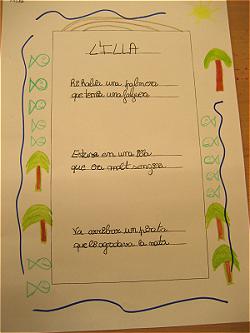 L'ILLA
Hi havia una palmera
que tenia una falguera
Estava en una illa
que era molt senzilla
Va arribar un pirata
que li agradava la nata